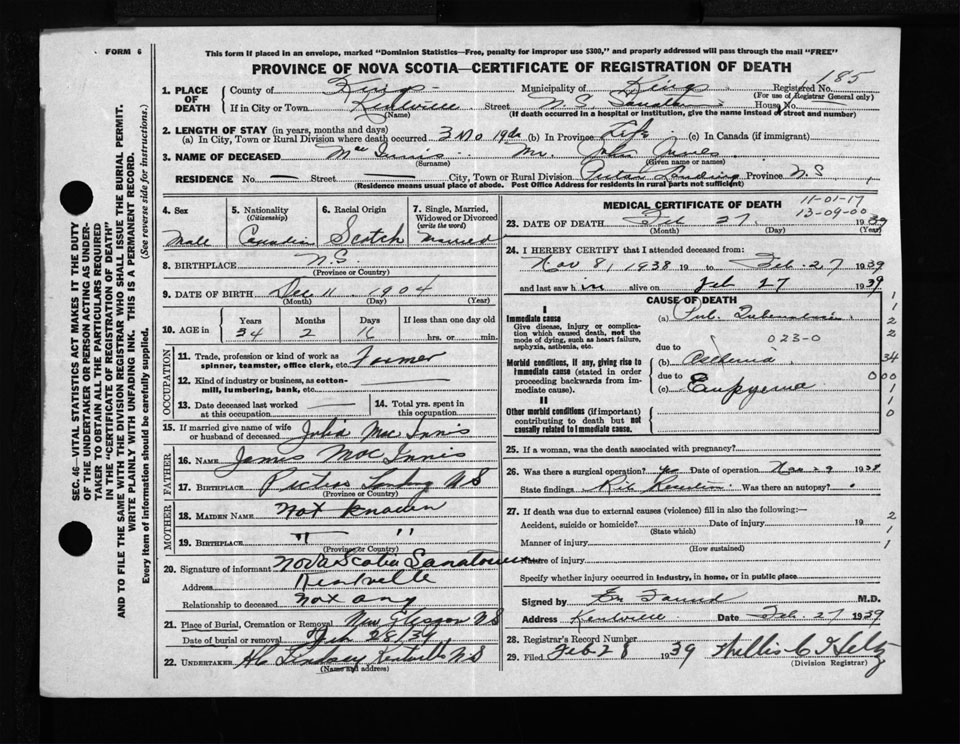 FORM 6
This form if placed in an envelope, marked "Dominion Statistics—Free, penalty for improper use $300," and properly addressed will pass through the mail "FREE"
PROVINCE OF NOVA SCOTIA—CERTIFICATE OF REGISTRATION OF DEATH
SEC. 46—VITAL STATISTICS ACT MAKES IT THE DUTY
OF THE UNDERTAKER OR PERSON ACTING AS UNDER-
TAKER TO OBTAIN ALL THE PARTICULARS REQUIRED
IN THE "CERTIFICATE OF REGISTRATION OF DEATH"
AND TO FILE THE SAME WITH THE DIVISION REGISTRAR WHO SHALL ISSUE THE BURIAL PERMIT.
WRITE PLAINLY WITH UNFADING INK. THIS IS A PERMANENT RECORD.
Every item of information should be carefully supplied. (See reverse side for instructions.)
1. PLACE OF DEATH County of Kings Municipality of Kings Registered No. 185
(For use of Registrar General only)
If in City or Town Kentville Street N.S. Sanatm House No. X
(Name) (If death occurred in a hospital or institution, give the name instead of street and number)
2. LENGTH OF STAY (in years, months and days)
(a) In City, Town or Rural Division where death occurred 3 mo 19 ds (b) In Province Life (c) In Canada (if immigrant)
3. NAME OF DECEASED Mac Innis Mr. John James
(Surname) (Given name or names)
RESIDENCE No. — Street — City, Town or Rural Division Pictou Landing Province N.S.
(Residence means usual place of abode. Post Office Address for residents in rural parts not sufficient)
4. Sex Male
5. Nationality (Citizenship) Canadian
6. Racial Origin Scotch
7. Single, Married, Widowed or Divorced (write the word) Married
8. BIRTHPLACE N.S.
(Province or Country)
9. DATE OF BIRTH Dec 11 1904
(Month) (Day) (Year)
10. AGE in Years Months Days If less than one day old
34 2 16 hrs. or min.
OCCUPATION
11. Trade, profession or kind of work as spinner, teamster, office clerk, etc. Farmer
12. Kind of industry or business, as cotton-mill, lumbering, bank, etc. —
13. Date deceased last worked at this occupation —
14. Total yrs. spent in this occupation
15. If married give name of wife or husband of deceased Julia Mac Innis
FATHER
16. NAME James Mac Innis
17. BIRTHPLACE Pictou Landing N.S
(Province or Country)
MOTHER
18. MAIDEN NAME Not known
19. BIRTHPLACE " "
(Province or Country)
20. Signature of informant Nova Scotia Sanatorium
Address Kentville
Relationship to deceased Not any
21. Place of Burial, Cremation or Removal New Glasgow NS
Date of burial or removal Feb 28/39
22. UNDERTAKER Lindsay Kentville N.S
(Name and address)
MEDICAL CERTIFICATE OF DEATH
11-01-17
13-09-00
23. DATE OF DEATH Feb 27 1939
(Month) (Day) (Year)
24. I HEREBY CERTIFY that I attended deceased from:
Nov 8, 1938 19 to Feb. 27 1939
and last saw him alive on Feb 27 1939
CAUSE OF DEATH
I
Immediate cause
Give disease, injury or complication which caused death, not the mode of dying, such as heart failure, asphyxia, asthenia, etc.
(a) Pul. Tuberculosis
023-0
due to
Morbid conditions, if any, giving rise to immediate cause (stated in order proceeding backwards from immediate cause).
(b) Asthma
due to
(c) Empyema
II
Other morbid conditions (if important) contributing to death but not causally related to immediate cause.
1
1
2
2
34
0 00
1
1
0
25. If a woman, was the death associated with pregnancy?
26. Was there a surgical operation? Yes Date of operation Nov 29 1938
State findings Rib Was there an autopsy?
27. If death was due to external causes (violence) fill in also the following:—
Accident, suicide or homicide? Date of injury 19
(State which)
Manner of injury
(How sustained)
Nature of injury
Specify whether injury occurred in industry, in home, or in public place
2
1
1
Signed by M.D.
Address Kentville Date Feb. 27 1939
28. Registrar's Record Number
29. Filed Feb 28 1939
(Division Registrar)